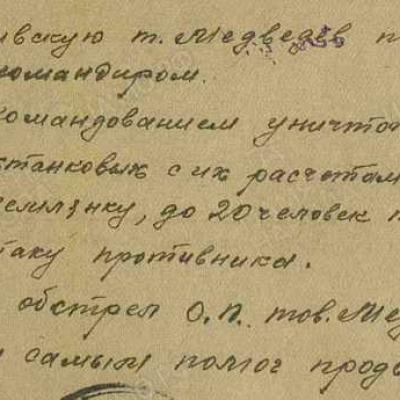 вскую т. Медведев п
командиром.
командованием уничто
хтанковых с их расчетам
землянку, до 20 человек п
таку противника.
обстрел О.П. тов. Мед
и самым помог продв